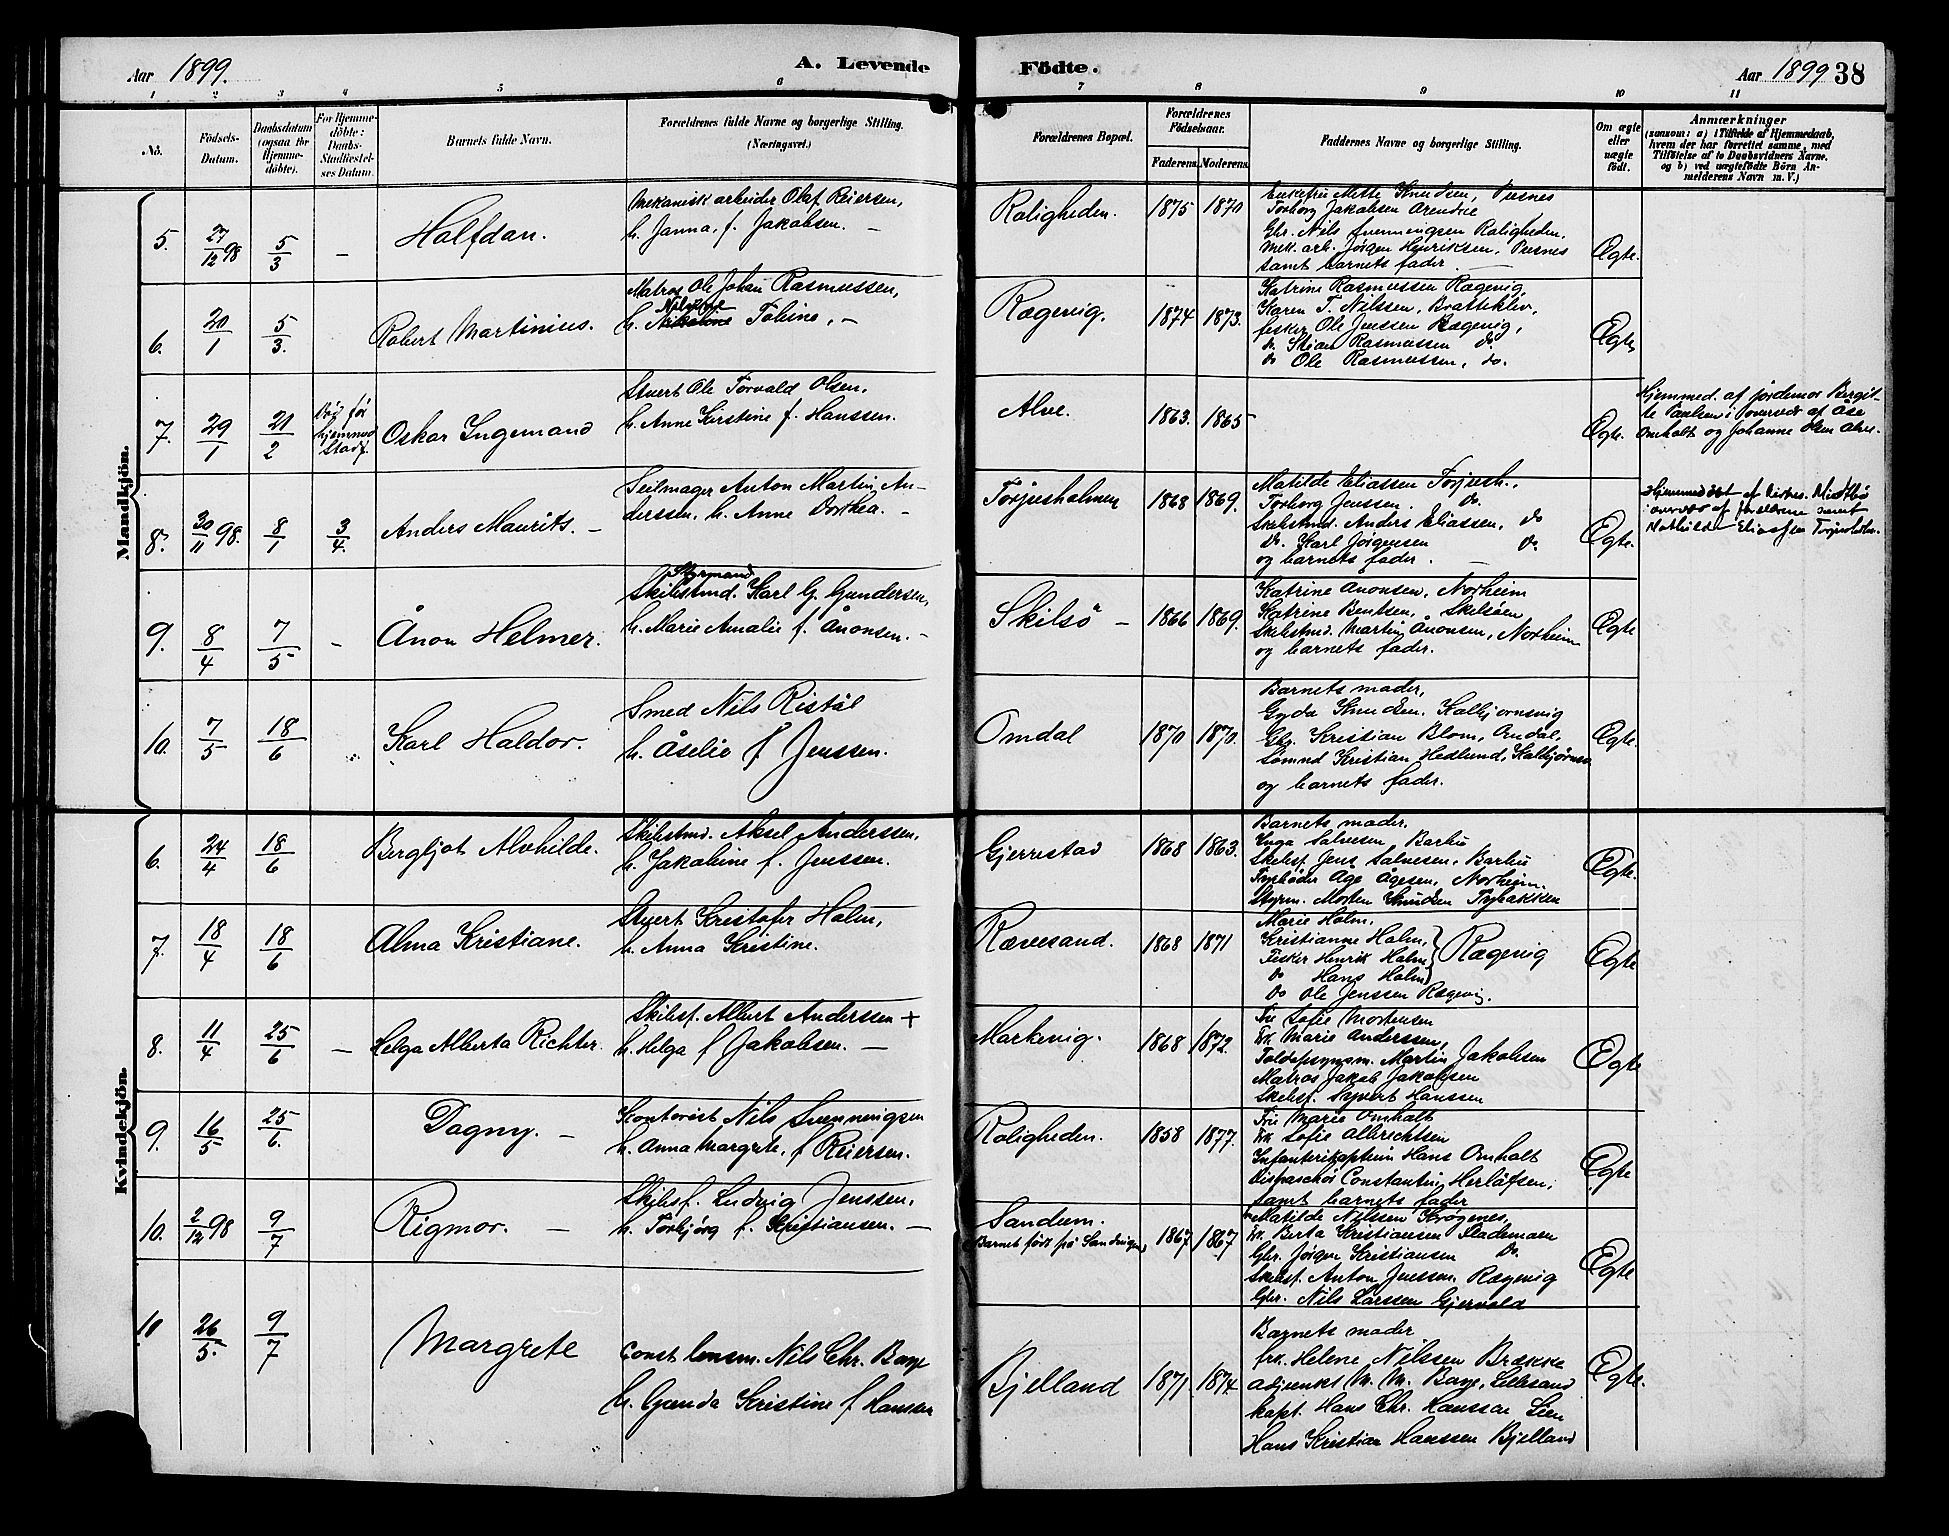 Aar 1899.
A. Levende Födte.
Aar 1899 38
1 2 3 4 5 6 7 8 9 10 11
No.
Födsels-Datum.
Daabsdatum (ogsaa for Hjemme-döbte).
For Hjemme-döbte: Daabs-Stadfæstel-ses Datum.
Barnets fulde Navn.
Forældrenes fulde Navne og borgerlige Stilling. (Næringsvei.)
Forældrenes Bopæl.
Forældrenes Födselsaar.
Faderens. Moderens.
Faddernes Navne og borgerlige Stilling.
Om ægte eller uægte födt.
Anmærkninger
(saasom: a) i Tilfælde af Hjemmedaab,
hvem der har forrettet samme, med
Tilföielse af to Daabsvidners Navne.
og b) ved uægtefödte Börn An-
melderens Navn m. V.)
Mandkjön.
5. 27/12 98 5/3 – Halfdan.
Mekanisk arbeider Olaf Reiersen,
h. Janna, f. Jakobsen. –
Roligheden. 1875 1870
Enkefru Mette Knudsen, Pusnes
Torborg Jakobsen Arendal
Gbr. Nils Svenningsen Roligheden.
Mek. arb. Jørgen Henriksen, Pusnes
samt barnets fader
Ægte.
6. 20/1 5/3. Robert Martinius.
Matros Ole Johan Rasmussen,
h. Tobine, –
Rægevig. 1874 1873.
Katrine Rasmussen Rægevig
Karen T. Nilssen, Bratteklev,
fisker Ole Jenssen Rægevig,
do. Stian Rasmussen do.
do Ole Rasmussen, do.
Ægte
7. 29/1 21/2 Død før hjemmed. stadf. Oskar Ingemand
Stuert Ole Torvald Olsen,
h. Anne Kirstine f. Hanssen.
Alve. 1863. 1865
Ægte.
Hjemmed. af jordemor Bergit-
te Paulsen i overvær af Åse
Omholt og Johanne Olsen Alve.
8. 30/11 98. 8/1 3/4. Anders Maurits. –
Seilmager Anton Martin An-
derssen, h. Anne Dorthea. –
Torjusholmen 1868 1869.
Matilde Eliassen Torjush.,
Torborg Jenssen. do.
Skibstmd. Anders Eliassen, do
Do. Karl Jørgensen do.
og barnets fader. –
Ægte.
Hjemmedøbt af
i overvær af forældrene samt
Mathilde Eliassen Torjusholm.
9. 8/4 7/5 – Ånon Helmer.
Styrmand
Skibstmd. Karl G. Gundersen,
h. Marie Amalie f. Ånonsen. –
Skilsø – 1866 1869.
Katrine Anonsen, Norheim
Katrine Bentsen, Skilsøen
Skibstmd. Martin Ånonsen, Norheim
og barnets fader.
Ægte
10. 7/5 18/6 Karl Haldor.
Smed Nils Ristøl
h. Åselie f Jenssen.
Omdal 1870 1870.
Barnets moder,
Gyda Knudsen. Kolbjornsvig
Gbr. Kristian Blom, Omdal,
Sømnd Kristian Hedlund, Kolbjørnsv
og barnets fader.
Ægte.
Kvindekjön.
6. 24/4 18/6 Bergljot Alvhilde.
Skibstmd. Aksel Anderssen,
h. Jakobine f. Jenssen.
Gjerrestad 1868 1863.
Barnets moder.
Inga Salvesen Barbu
Skibsf. Jens Salvesen, Barbu
Fyrbøder Åge Ågesen, Norheim.
Styrm. Morten Knudsen Frybakken
Ægte.
7. 18/4 18/6 Alma Kristiane.
Stuert Kristofer Holm,
h. Anna Kristine.
Rævesand. 1868 1871
Marie Holm.
Kristianne Holm,
Fisker Henrik Holm } Rægevig
Do Hans Holm
Do Ole Jenssen Rægevig.
Ægte
8. 11/4 25/6 – Helga Alberta Richter.
Skibsf. Albert Anderssen +
h. Helga f Jakobsen. –
Markevig. 1868 1872.
Fru Sofie Mortensen
Frk. Marie Anderssen,
Toldopsynsm. Martin Jakobsen
Matros Jakob Jakobsen
Skibsf. Sigvert Hanssen
Ægte
9. 16/5 25/6. Dagny. –
Kontorist Nils Svenningsen
h. Anna Margrete, f Reiersen.
Roligheden. 1858 1877.
Fru Marie Omholt
Frk Sofie Albrechtsen
Infanterikaptein Hans Omholt
Dispaschør Constantin Herlofsen,
samt barnets fader
Ægte
10. 2/12 98 9/7 Rigmor. –
Skibsf. Ludvig Jenssen,
h. Torbjørg f. Kristiansen. –
Sandum.
Barnet født på Sandvigen, 1867 1867
Matilde Nilssen Krøgenes,
Frk. Berta Kristiansen Plademoen
Gbr. Jørgen Kristiansen Do.
Skibsf. Anton Jenssen, Rægevig
Gbr. Nils Larssen Gjervold
Ægte
11 26/5. 9/7 Margrete
const lensm. Nils Chr. Boye
h. Gunda Kristine f Hanssen
Bjelland 1871 1874.
Barnets moder
frk. Helene Nilssen Brække
adjunkt M. M. Boye, Lillesand
kapt. Hans Chr. Hanssen Lien
Hans Kristian Hanssen Bjelland
Ægte.